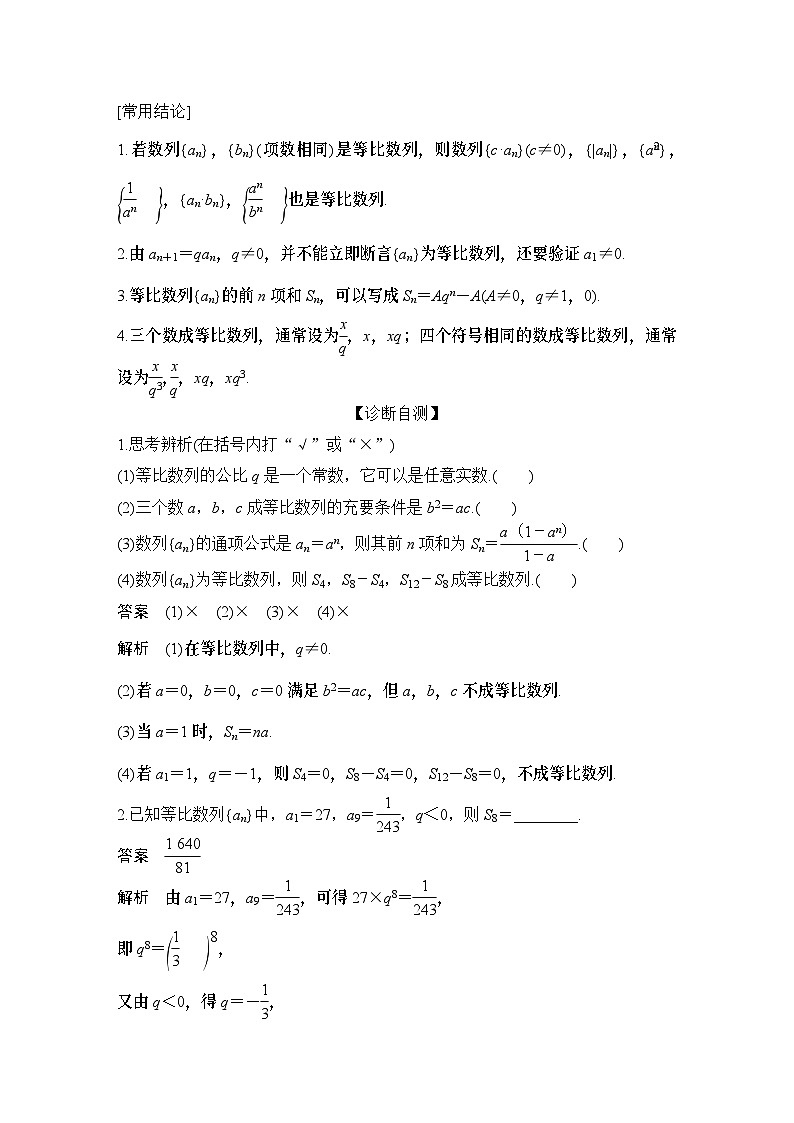 [常用结论]
1.若数列{aₙ}，{bₙ}(项数相同)是等比数列，则数列{c·aₙ}(c≠0)，{|aₙ|}，{a²ₙ}，
{1/aₙ}，{aₙ·bₙ}，{aₙ/bₙ}也是等比数列.
2.由aₙ₊₁＝qaₙ，q≠0，并不能立即断言{aₙ}为等比数列，还要验证a₁≠0.
3.等比数列{aₙ}的前n项和Sₙ，可以写成Sₙ＝Aqⁿ－A(A≠0，q≠1，0).
4.三个数成等比数列，通常设为x/q，x，xq；四个符号相同的数成等比数列，通常
设为x/q³，x/q，xq，xq³.
【诊断自测】
1.思考辨析(在括号内打“√”或“×”)
(1)等比数列的公比q是一个常数，它可以是任意实数.(　　)
(2)三个数a，b，c成等比数列的充要条件是b²＝ac.(　　)
(3)数列{aₙ}的通项公式是aₙ＝aⁿ，则其前n项和为Sₙ＝a（1－aⁿ）/1－a.(　　)
(4)数列{aₙ}为等比数列，则S₄，S₈－S₄，S₁₂－S₈成等比数列.(　　)
答案　(1)×　(2)×　(3)×　(4)×
解析　(1)在等比数列中，q≠0.
(2)若a＝0，b＝0，c＝0满足b²＝ac，但a，b，c不成等比数列.
(3)当a＝1时，Sₙ＝na.
(4)若a₁＝1，q＝－1，则S₄＝0，S₈－S₄＝0，S₁₂－S₈＝0，不成等比数列.
2.已知等比数列{aₙ}中，a₁＝27，a₉＝1/243，q＜0，则S₈＝________.
答案　1 640/81
解析　由a₁＝27，a₉＝1/243，可得27×q⁸＝1/243，
即q⁸＝(1/3)⁸，
又由q＜0，得q＝－1/3，